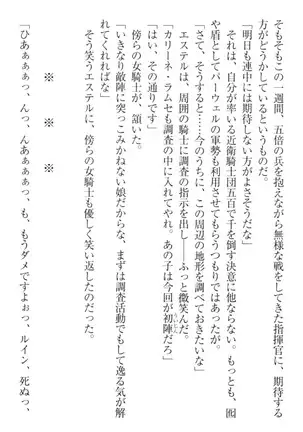 そもそもこの一週間、五倍の兵を抱えながら無様な戦をしてきた指揮官に、期待する
方がどうかしているというものだ。
「明日も連中には期待しない方がよさそうだな」
それは、自分が率いる近衛騎士団五百で千を倒す決意に他ならない。もっとも、囮
や盾としてパーウェルの軍勢も利用させてもらうつもりではあったが。
「さて、そうすると…今のうちに、この周辺の地形を調べておきたいな」
エステルは、周囲の騎士に調査の指示を出し――ふっと微笑んだ。
「カリーネ・ラムセも調査の中に入れてやれ。あの子は今回が初陣だろ」
「はい、その通りです」
傍らの女騎士が、頷いた。
「いきなり敵陣に突っこみかねない娘だからな、まずは調査活動でもして逸る気が解
れてくれればな」
そう笑うエステルに、傍らの女騎士も優しく笑い返したのだった。
※　※　※
「ひあぁぁぁっ、んっ、んあぁぁぁっ　も、もうダメですよぉっ、ルイン、死ぬっ、